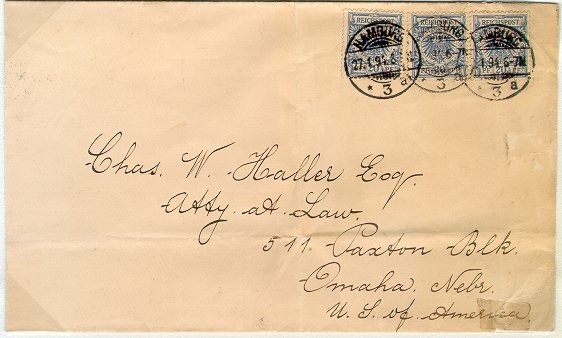 REICHSPOST REICHSPOST REICHSPOST
HAMBURG HAMBURG
27.1.94.6 1.94.6-7N
* 3 a * 3 a * 3 a
Chas. W. Haller Esq.
Atty. at. Law.
511. Paxton Blk.
Omaha. Nebr.
U. S. of America